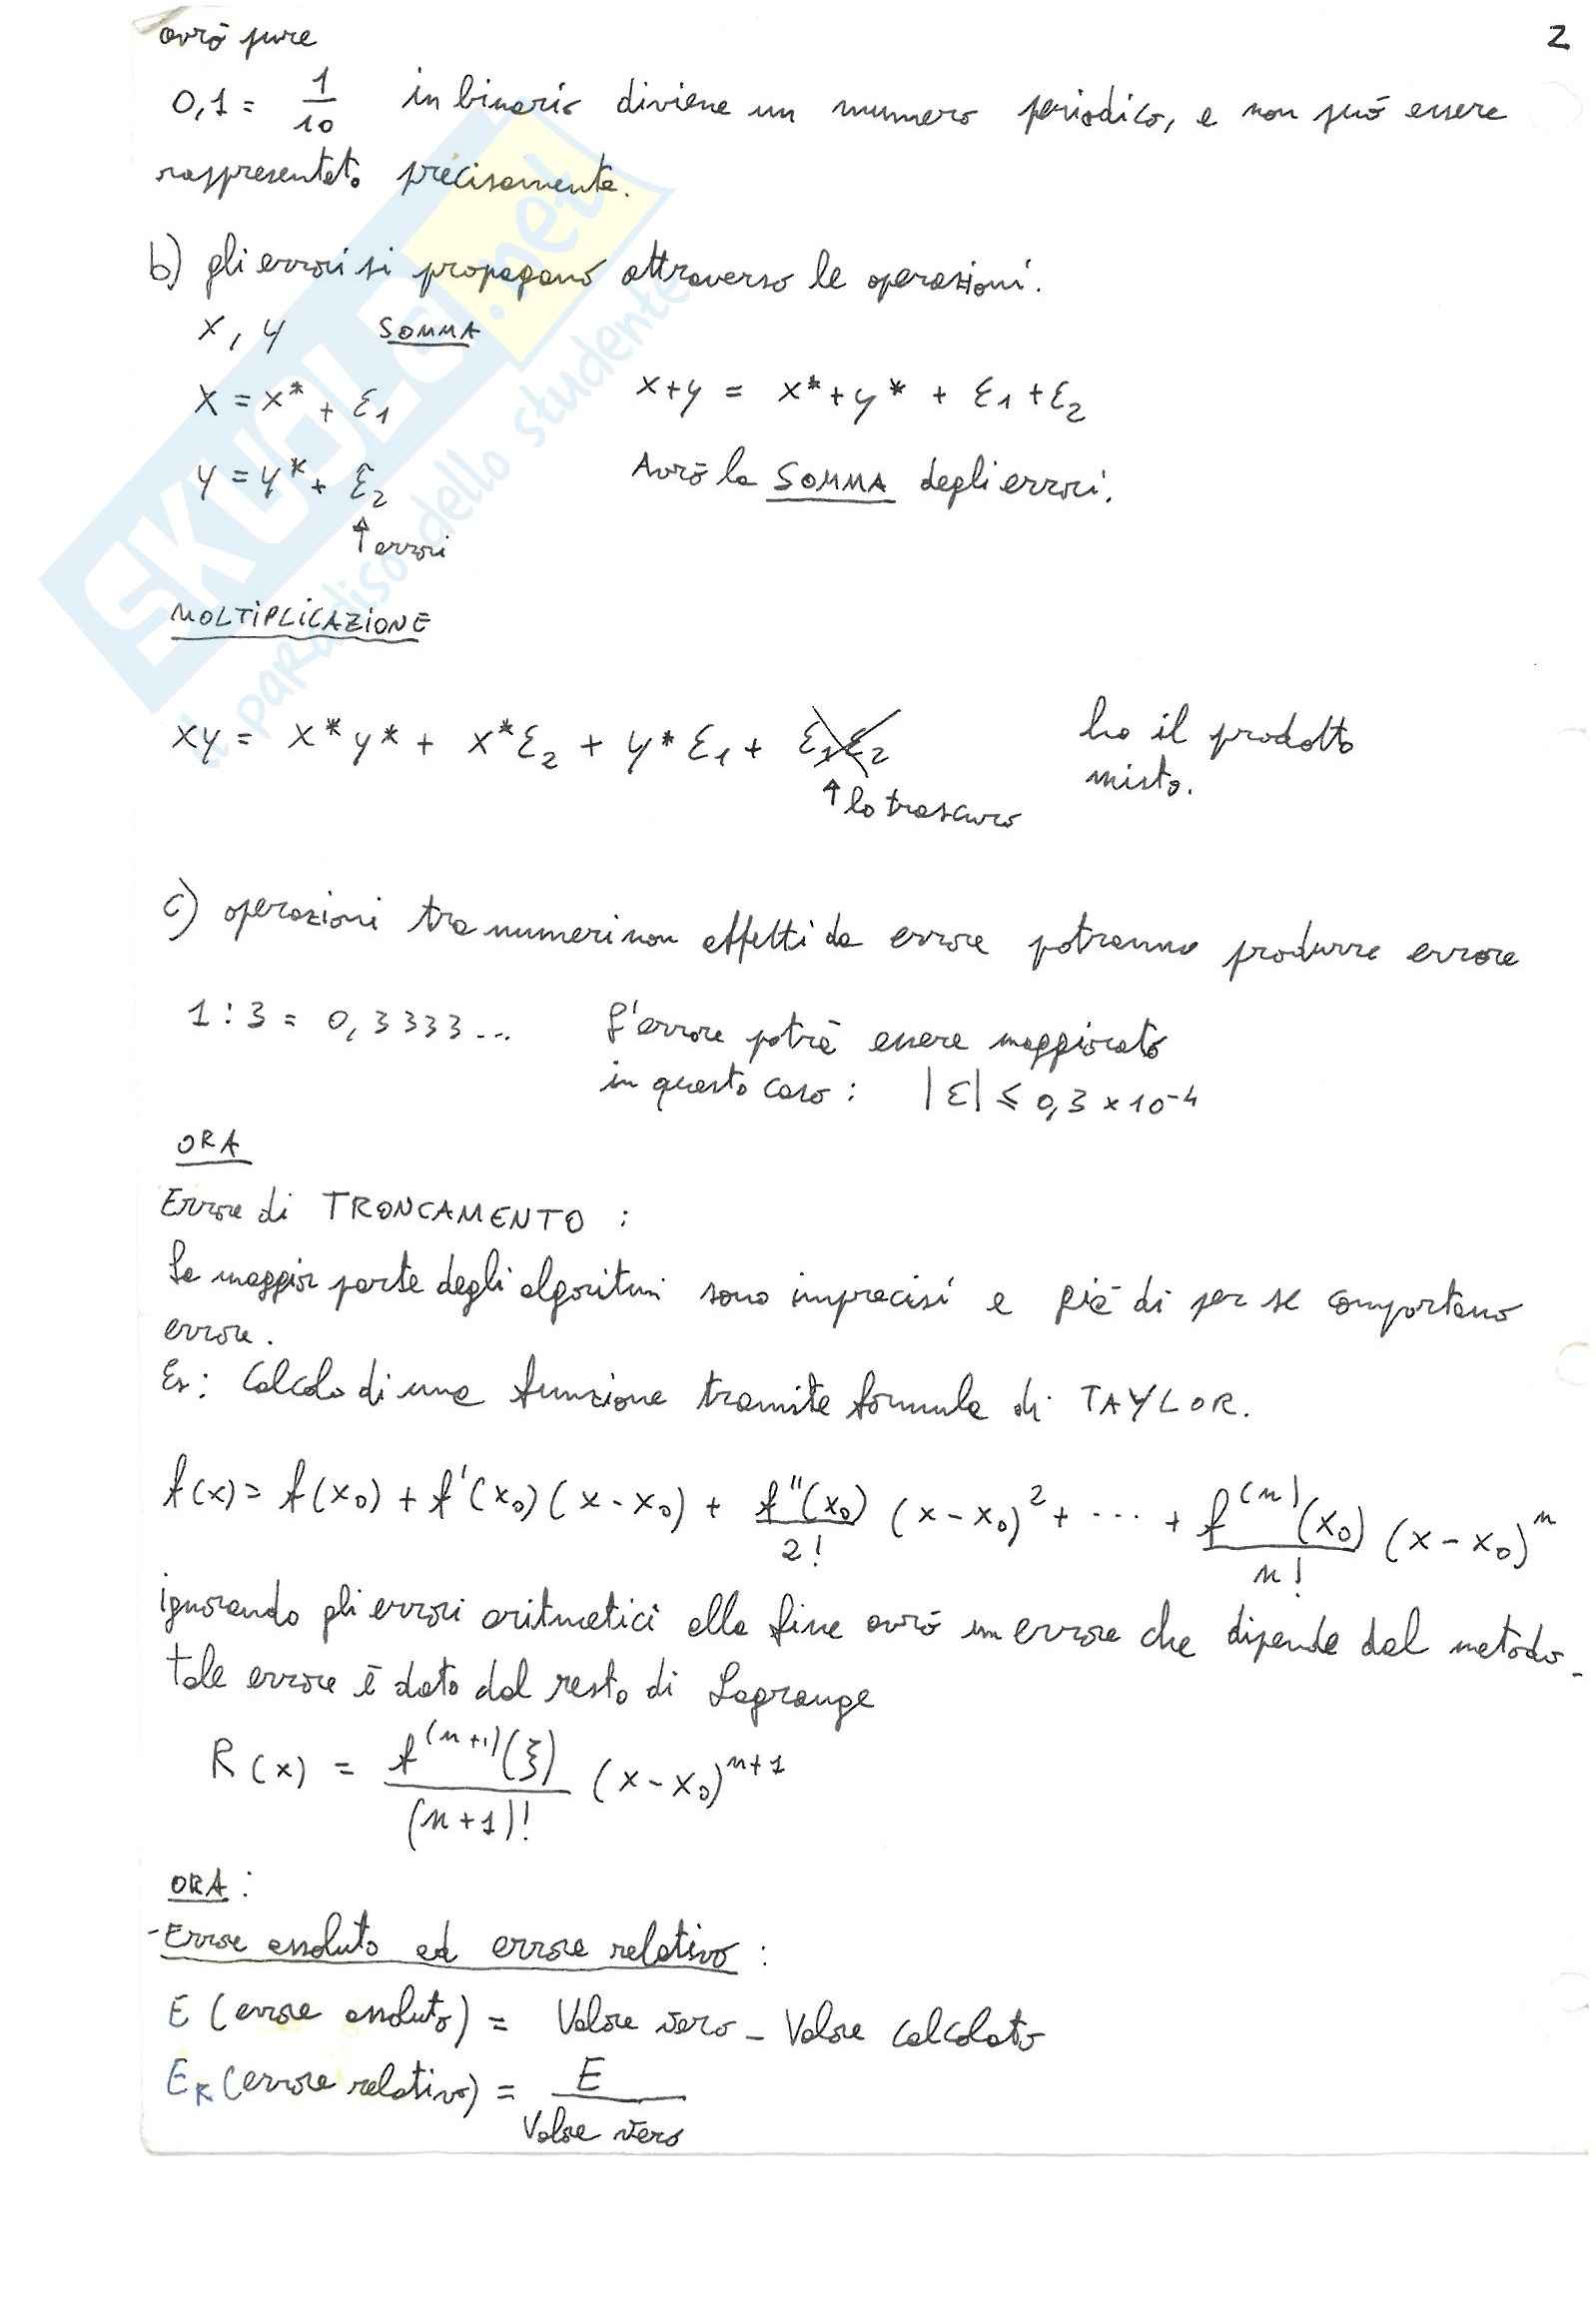 avrò pure
2
0,1 = 1/10 in binario diviene un numero periodico, e non può essere
rappresentato precisamente.
b) gli errori si propagano attraverso le operazioni.
x, y SOMMA
x = x* + ε1 x+y = x* + y* + ε1 + ε2
y = y* + ε2 Avrò la SOMMA degli errori.
↑ errori
MOLTIPLICAZIONE
xy = x*y* + x*ε2 + y*ε1 + ε1ε2 ho il prodotto
misto.
↑ lo trascuro
c) operazioni tra numeri non affetti da errore potranno produrre errore
1 : 3 = 0,3333... L'errore potrà essere maggiorato
in questo caso : |ε| ≤ 0,3 × 10⁻⁴
ORA
Errore di TRONCAMENTO :
La maggior parte degli algoritmi sono imprecisi e già di per se comportano
errore.
Es: Calcolo di una funzione tramite formula di TAYLOR.
f(x) = f(x₀) + f'(x₀)(x-x₀) + f''(x₀)/2! (x-x₀)² + ... + f⁽ⁿ⁾(x₀)/n! (x-x₀)ⁿ
ignorando gli errori aritmetici alla fine avrò un errore che dipende dal metodo.
tale errore è dato dal resto di Lagrange
R(x) = f⁽ⁿ⁺¹⁾(ξ)/(n+1)! (x-x₀)ⁿ⁺¹
ORA :
- Errore assoluto ed errore relativo :
E (errore assoluto) = Valore vero - Valore calcolato
E_R (errore relativo) = E/Valore vero
SKUOLA.net
il paradiso dello studente